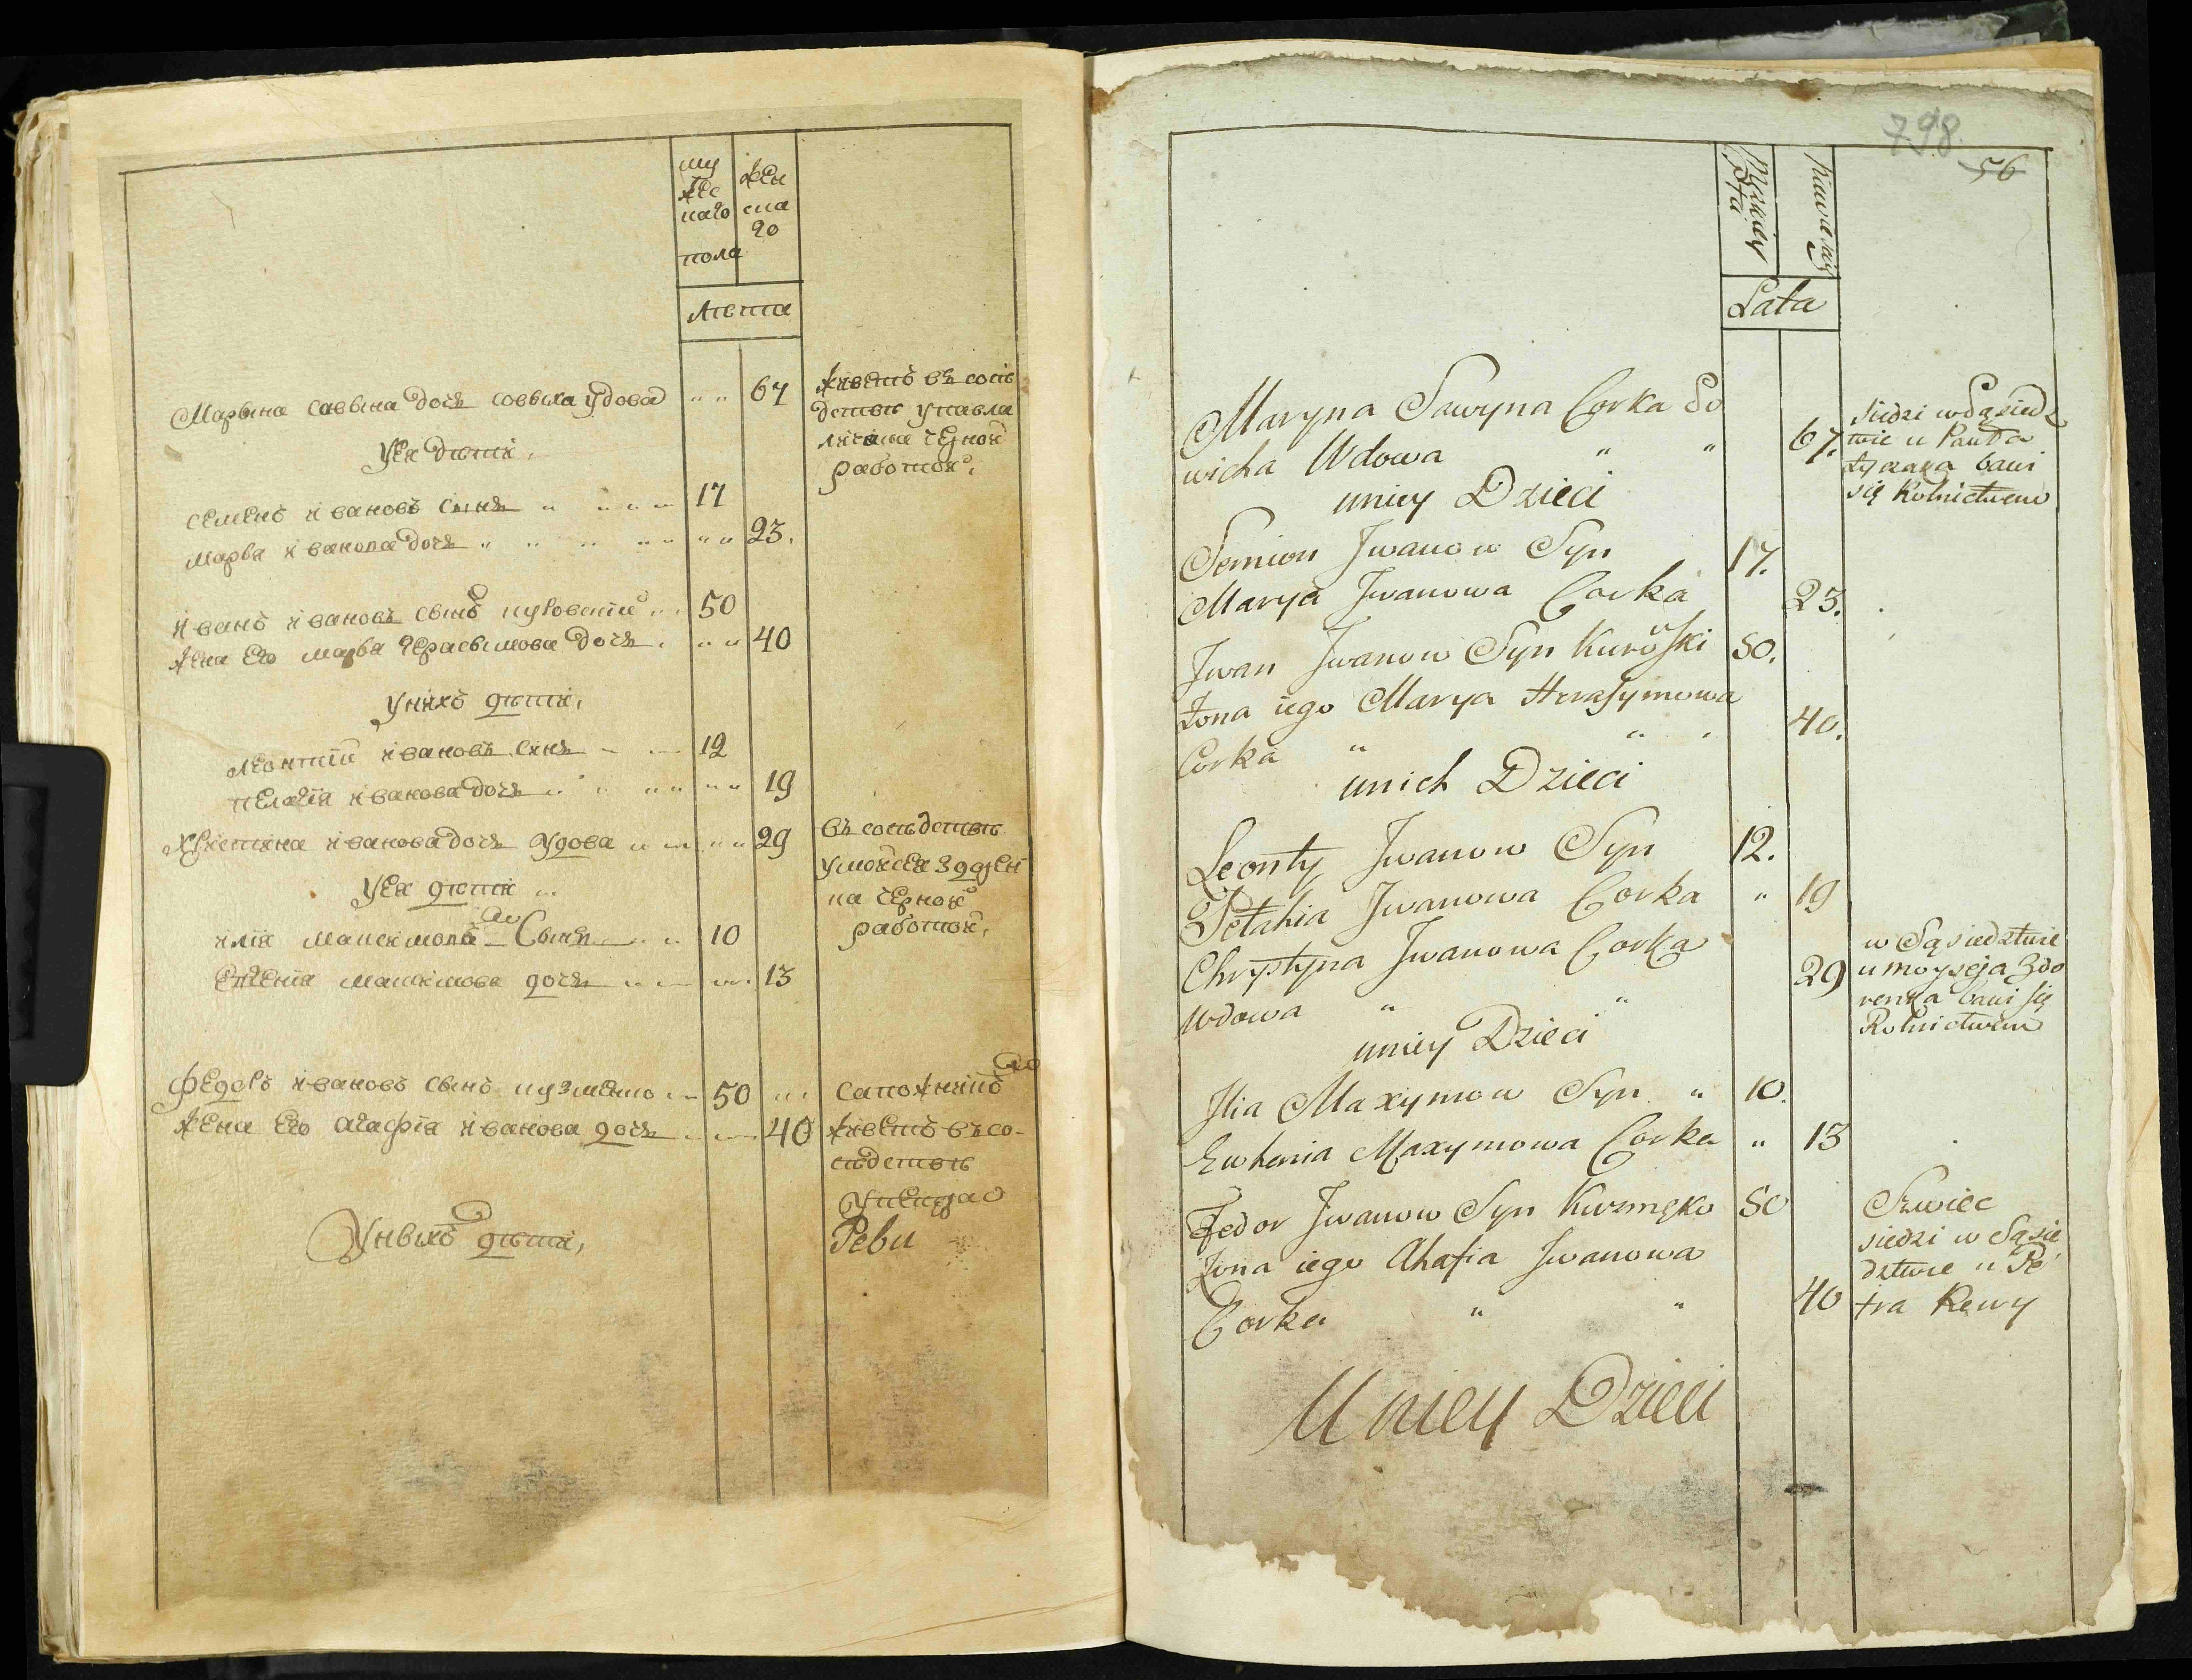 му
жес
каго
пола
жен
ска
го
Лѣта
Марына савына дочь совыха удова " " 67
живетъ въ сосѣ
детвѣ у павла
черной
работой.
Уея дѣти.
семенъ ивановъ синъ " " " " 17
марья иванова дочь " " " " " " 23.
иванъ ивановъ сынъ куровскій 50
жена его марья герасымова дочь . " " 40
унихъ дѣти,
леонтій ивановъ синъ 12
пелагія иванова дочь " " " " 19
христина иванова дочь удова " " " " 29
въ сосѣдствѣ
умойсея здорен
ка черной
работой,
Уея дѣти
илія максимовъ Сынъ 10
евгенія максимова дочь 13
федоръ ивановъ сынъ кузменко 50
сапожникъ
жена его агафія иванова дочь 40
живетъ въ со-
сѣдствѣ
упетра
Ревы
Унихъ дѣти,
798
56
Lata
Maryna Sawyna Corka So
wicha Wdowa " " 67.
siedzi w Sąsiedz
twie u Pawła
bawi
się Rolnictwem
uniey Dzieci
Semion Jwanow Syn 17.
Marya Jwanowa Corka 23.
Jwan Jwanow Syn Kurowski 50.
Zona iego Marya Herasymowa
Corka " " 40.
unich Dzieci
Leonty Jwanow Syn 12.
Pelahia Jwanowa Corka " 19
Chrystyna Jwanowa Corka
Wdowa " " 29
w Sąsiedztwie
u moyseja Zdo
renka bawi się
Rolnictwem
uniey Dzieci
Ilia Maxymow Syn " 10.
Ewhenia Maxymowa Corka " 13
Fedor Jwanow Syn Kuzmęko 50
Zona iego Ahafia Jwanowa
Corka " " 40
Szwiec
siedzi w Sąsie
dztwie u Pe
tra Rewy
Uniey Dzieci